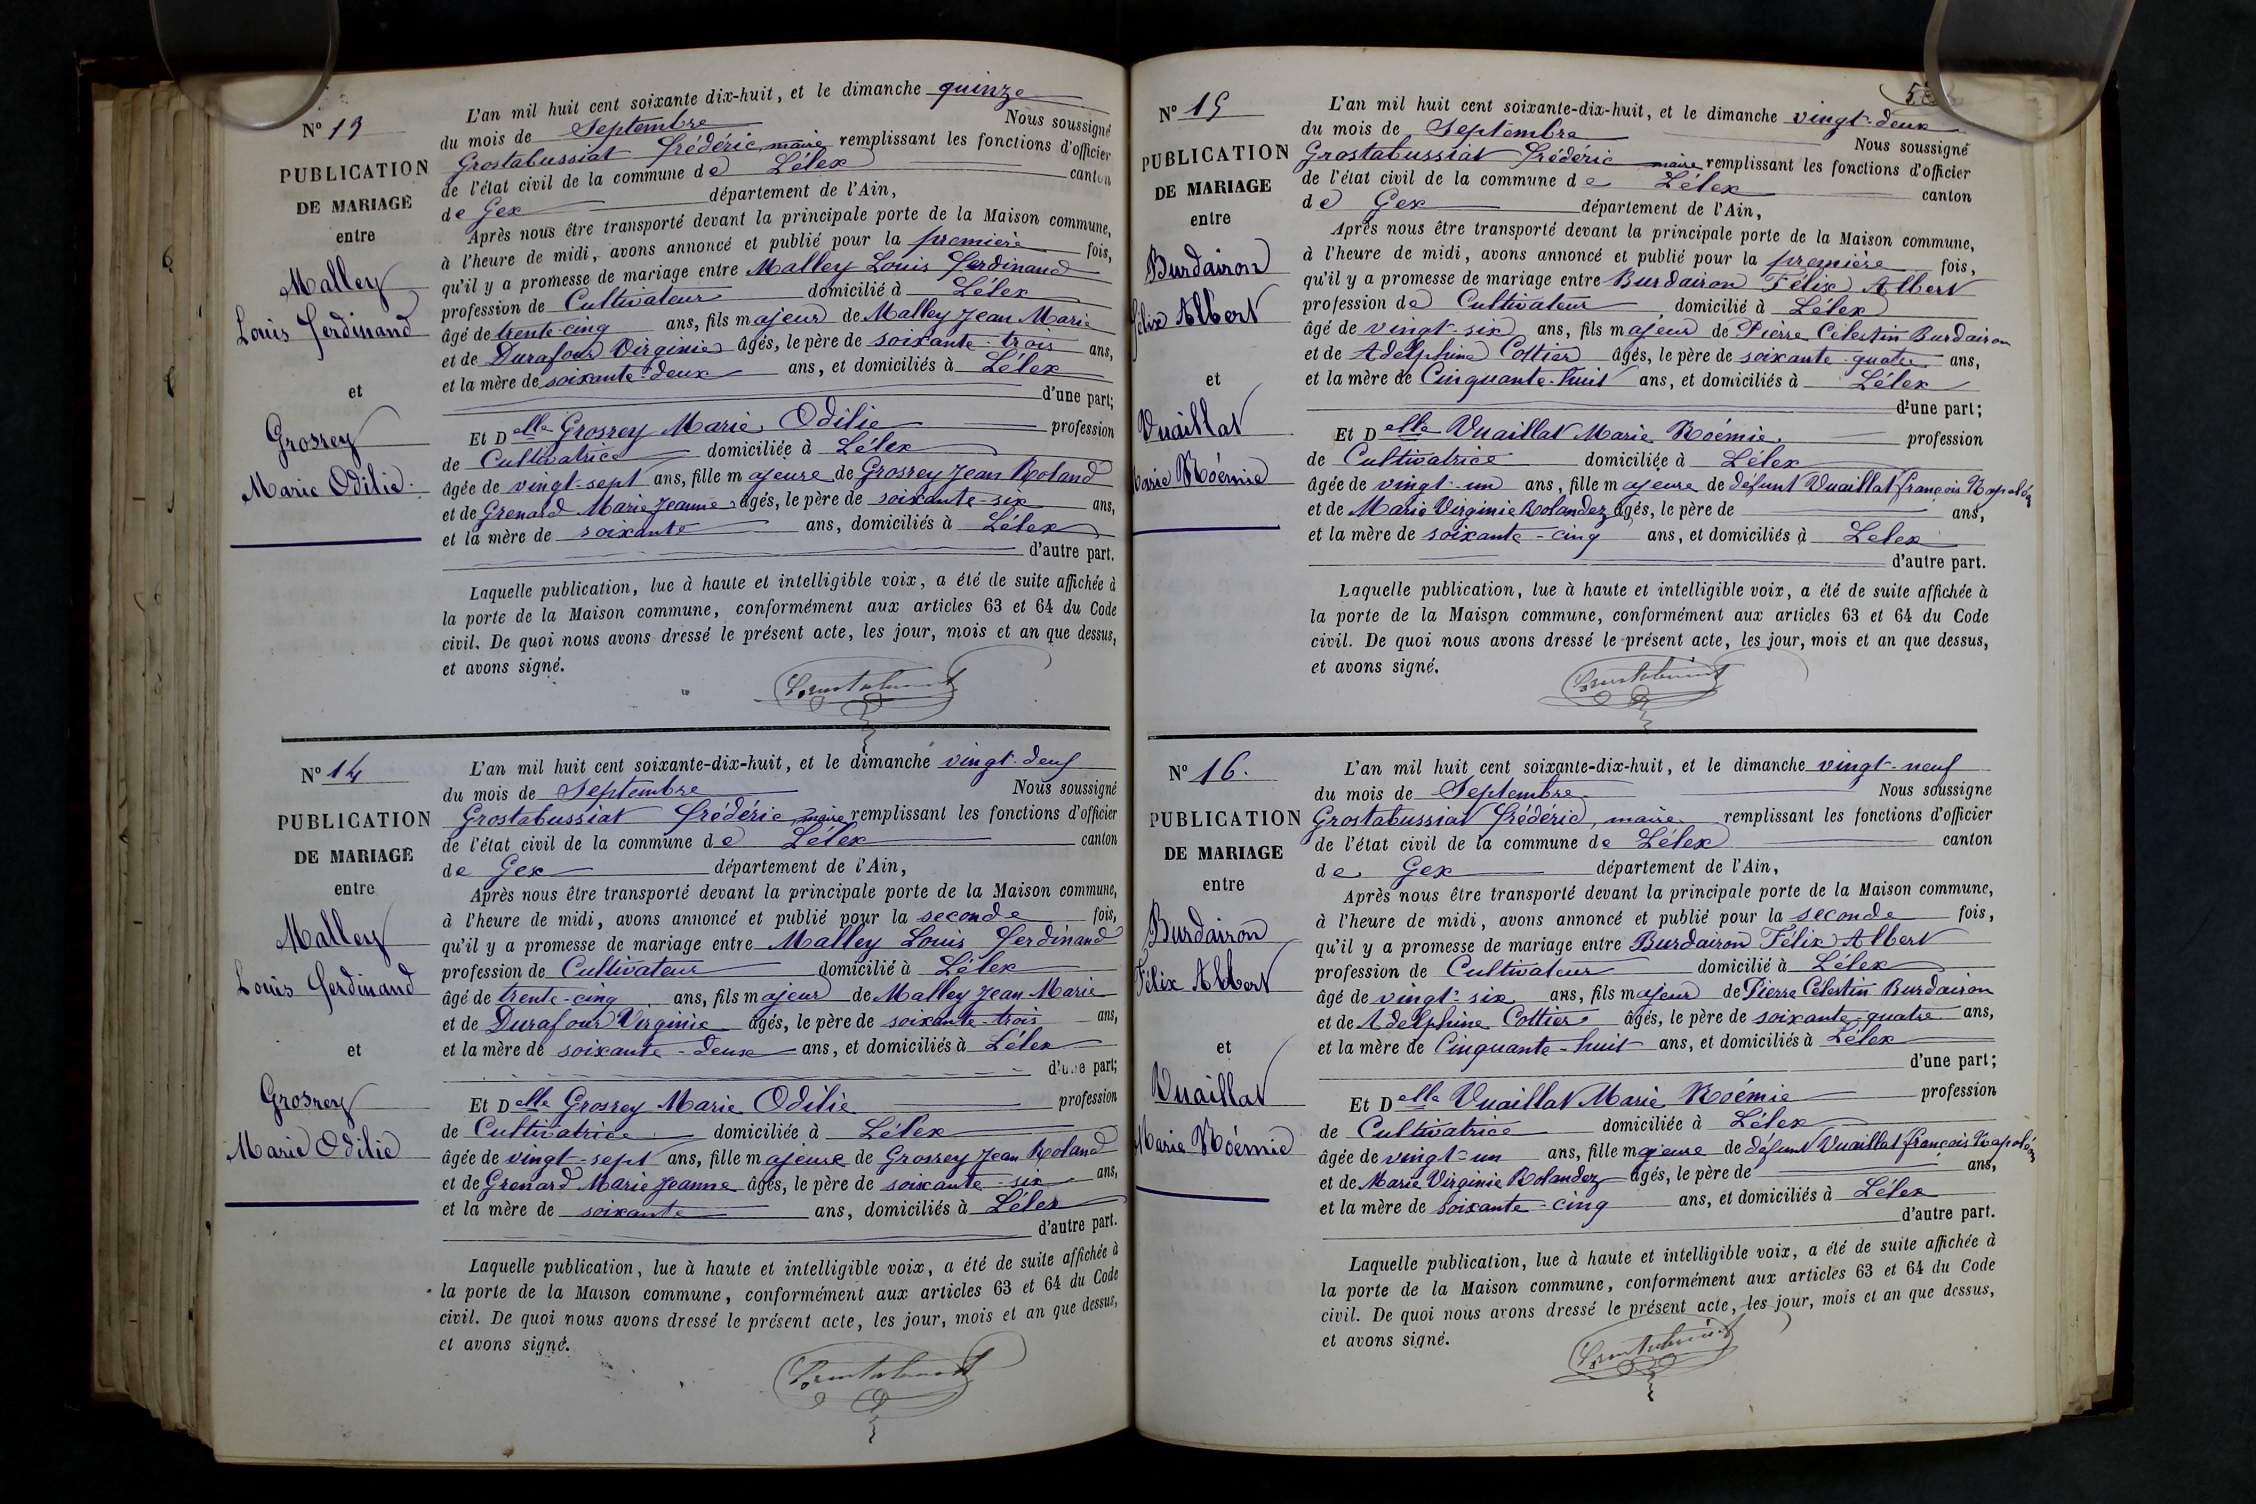 N° 13
PUBLICATION
DE MARIAGE
entre
Malley
Louis Ferdinand
et
Grosrey
Marie Odilie.
L'an mil huit cent soixante dix-huit, et le dimanche quinze
du mois de Septembre Nous soussigné
Grostabussiat Frédéric, maire remplissant les fonctions d'officier
de l'état civil de la commune de Lélex canton
de Gex département de l'Ain,
Après nous être transporté devant la principale porte de la Maison commune,
à l'heure de midi, avons annoncé et publié pour la première fois,
qu'il y a promesse de mariage entre Malley Louis Ferdinand
profession de Cultivateur domicilié à Lélex
âgé de trente-cinq ans, fils majeur de Malley Jean Marie
et de Durafour Virginie âgés, le père de soixante-trois ans,
et la mère de soixante-deux ans, et domiciliés à Lélex
d'une part;
Et Delle Grosrey Marie Odilie profession
de Cultivatrice domiciliée à Lélex
âgée de vingt-sept ans, fille majeure de Grosrey Jean Roland
et de Grenard Marie Jeanne âgés, le père de soixante-six ans,
et la mère de soixante ans, domiciliés à Lélex
d'autre part.
Laquelle publication, lue à haute et intelligible voix, a été de suite affichée à
la porte de la Maison commune, conformément aux articles 63 et 64 du Code
civil. De quoi nous avons dressé le présent acte, les jour, mois et an que dessus,
et avons signé.
N° 14
PUBLICATION
DE MARIAGE
entre
Malley
Louis Ferdinand
et
Grosrey
Marie Odilie
L'an mil huit cent soixante-dix-huit, et le dimanche vingt-deux
du mois de Septembre Nous soussigné
Grostabussiat Frédéric, maire remplissant les fonctions d'officier
de l'état civil de la commune de Lélex canton
de Gex département de l'Ain,
Après nous être transporté devant la principale porte de la Maison commune,
à l'heure de midi, avons annoncé et publié pour la seconde fois,
qu'il y a promesse de mariage entre Malley Louis Ferdinand
profession de Cultivateur domicilié à Lélex
âgé de trente-cinq ans, fils majeur de Malley Jean Marie
et de Durafour Virginie âgés, le père de soixante-trois ans,
et la mère de soixante-deux ans, et domiciliés à Lélex
d'une part;
Et Delle Grosrey Marie Odilie profession
de Cultivatrice domiciliée à Lélex
âgée de vingt-sept ans, fille majeure de Grosrey Jean Roland
et de Grenard Marie Jeanne âgés, le père de soixante-six ans,
et la mère de soixante ans, domiciliés à Lélex
d'autre part.
Laquelle publication, lue à haute et intelligible voix, a été de suite affichée à
la porte de la Maison commune, conformément aux articles 63 et 64 du Code
civil. De quoi nous avons dressé le présent acte, les jour, mois et an que dessus,
et avons signé.
N° 15
PUBLICATION
DE MARIAGE
entre
Burdairon
Félix Albert
et
Vuaillat
Marie Noémie
L'an mil huit cent soixante-dix-huit, et le dimanche vingt-deux
du mois de Septembre Nous soussigné
Grostabussiat Frédéric maire remplissant les fonctions d'officier
de l'état civil de la commune de Lélex canton
de Gex département de l'Ain,
Après nous être transporté devant la principale porte de la Maison commune,
à l'heure de midi, avons annoncé et publié pour la première fois,
qu'il y a promesse de mariage entre Burdairon Félix Albert
profession de Cultivateur domicilié à Lélex
âgé de vingt-six ans, fils majeur de Pierre Célestin Burdairon
et de Adelphine Cottier âgés, le père de soixante-quatre ans,
et la mère de Cinquante-huit ans, et domiciliés à Lélex
d'une part;
Et Delle Vuaillat Marie Noémie profession
de Cultivatrice domiciliée à Lélex
âgée de vingt-un ans, fille majeure de défunt Vuaillat François Napoléon
et de Marie Virginie Rolandez âgés, le père de ans,
et la mère de soixante-cinq ans, et domiciliés à Lelex
d'autre part.
Laquelle publication, lue à haute et intelligible voix, a été de suite affichée à
la porte de la Maison commune, conformément aux articles 63 et 64 du Code
civil. De quoi nous avons dressé le présent acte, les jour, mois et an que dessus,
et avons signé.
N° 16.
PUBLICATION
DE MARIAGE
entre
Burdairon
Félix Albert
et
Vuaillat
Marie Noémie
L'an mil huit cent soixante-dix-huit, et le dimanche vingt-neuf
du mois de Septembre Nous soussigné
Grostabussiat Frédéric, maire remplissant les fonctions d'officier
de l'état civil de la commune de Lélex canton
de Gex département de l'Ain,
Après nous être transporté devant la principale porte de la Maison commune,
à l'heure de midi, avons annoncé et publié pour la seconde fois,
qu'il y a promesse de mariage entre Burdairon Félix Albert
profession de Cultivateur domicilié à Lélex
âgé de vingt-six ans, fils majeur de Pierre Célestin Burdairon
et de Adelphine Cottier âgés, le père de soixante-quatre ans,
et la mère de Cinquante-huit ans, et domiciliés à Lélex
d'une part;
Et Delle Vuaillat Marie Noémie profession
de Cultivatrice domiciliée à Lélex
âgée de vingt-un ans, fille majeure de défunt Vuaillat François Napoléon
et de Marie Virginie Rolandez âgés, le père de ans,
et la mère de soixante-cinq ans, et domiciliés à Lélex
d'autre part.
Laquelle publication, lue à haute et intelligible voix, a été de suite affichée à
la porte de la Maison commune, conformément aux articles 63 et 64 du Code
civil. De quoi nous avons dressé le présent acte, les jour, mois et an que dessus,
et avons signé.